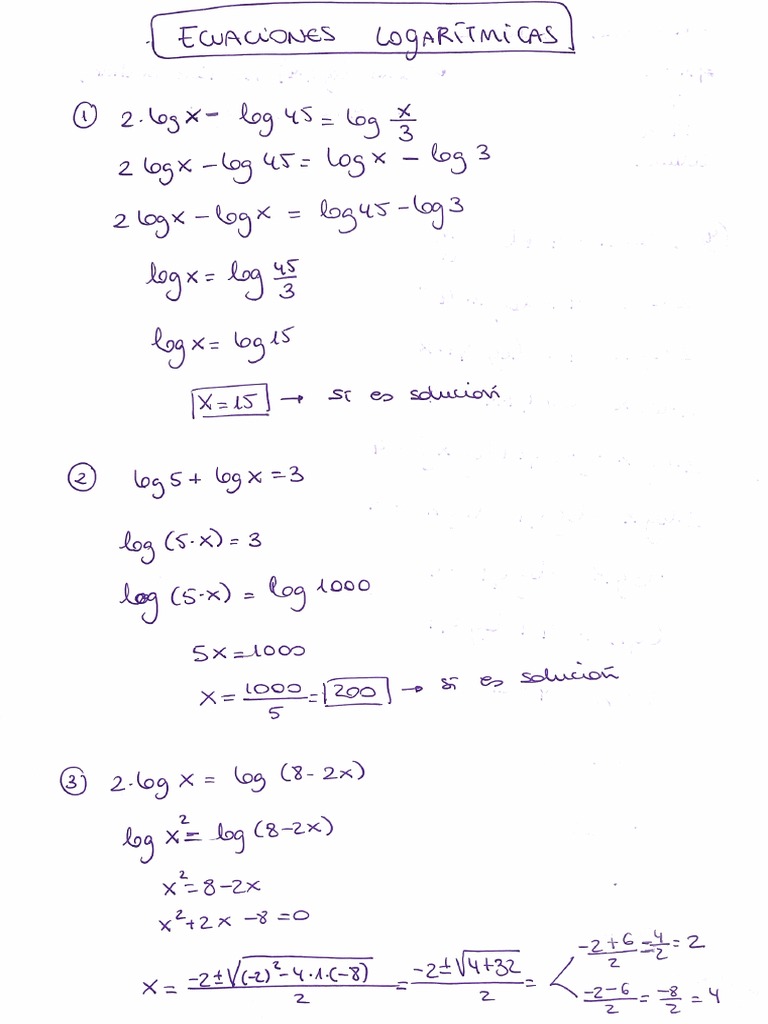 ECUACIONES LOGARÍTMICAS
① 2·log x - log 45 = log x/3
2 log x - log 45 = log x - log 3
2 log x - log x = log 45 - log 3
log x = log 45/3
log x = log 15
x = 15 → sí es solución
② log 5 + log x = 3
log (5·x) = 3
log (5·x) = log 1000
5x = 1000
x = 1000/5 = 200 → sí es solución
③ 2·log x = log (8 - 2x)
log x² = log (8 - 2x)
x² = 8 - 2x
x² + 2x - 8 = 0
x = -2 ± √((-2)² - 4·1·(-8))/2 = -2 ± √(4 + 32)/2 =
-2+6/2 = 4/2 = 2
-2-6/2 = -8/2 = 4